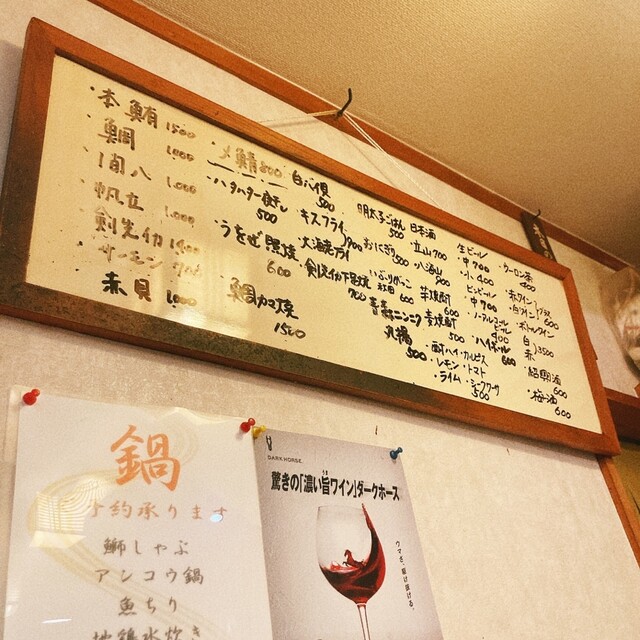 ・本鮪 1500
・鯛 1,000
・間八 1,000
・帆立 1,000
・剣先イカ
・サーモン 700
・赤貝 1,000
・〆鯖 800
・ハタハタ一夜干し 500
・うなぎ照焼 600
・鯛カマ焼 1500
白バイ貝 500
キスフライ
・大海老フライ
・剣先イカ下足焼 700
明太子ごはん 500
おにぎり
いぶりがっこ 600
青森ニンニク丸揚 500
日本酒
・立山 700
・八海山
芋焼酎 600
麦焼酎 500
・酎ハイ・カルピス
・レモン・トマト
・ライム・シークワーサー 500
生ビール
・中 700
・小 400
ビンビール
・中 700
・ノンアルコール
・ハイボール 600
・ウーロン茶 400
・赤ワイン 1グラス
・白ワイン 600
・ボトルワイン
白
赤 3500
・紹興酒 600
・梅酒 600
鍋
予約承ります
鰤しゃぶ
アンコウ鍋
魚ちり
地鶏水炊き
DARK HORSE.
驚きの「濃い旨ワイン」ダークホース
ウマさ、駆け抜ける。